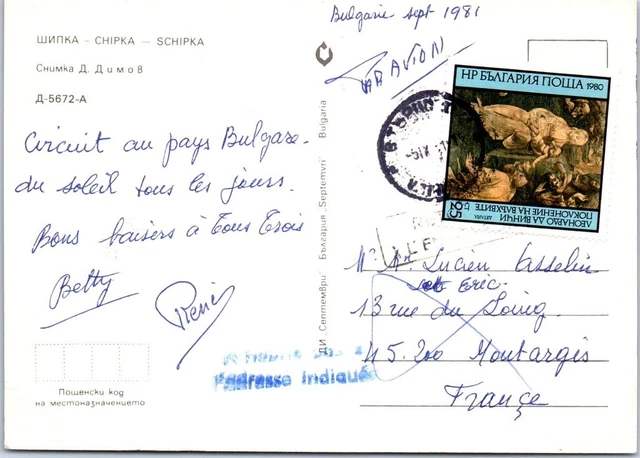 Bulgarie sept 1981
PAR AVION
ШИПКА – CHIPKA – SCHIPKA
Снимка Д. Димов
Д-5672-А
Circuit au pays Bulgare.
du soleil tous les jours.
Bons baisers à tous trois
Betty
René
Пощенски код
на местоназначението
ДИ „Септември“ България Septemvri Bulgaria
НР БЪЛГАРИЯ ПОЩА 1980
ЛЕОНАРДО ДА ВИНЧИ
ПОКЛОНЕНИЕ НА ВЛЪХВИТЕ
25 СТ
M Lucien Vasselin
Eric.
13 rue du Loing.
45.200 Montargis
France
l'adresse indiquée